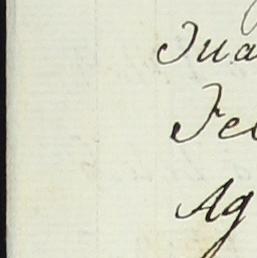 Jua
Fel
Ag